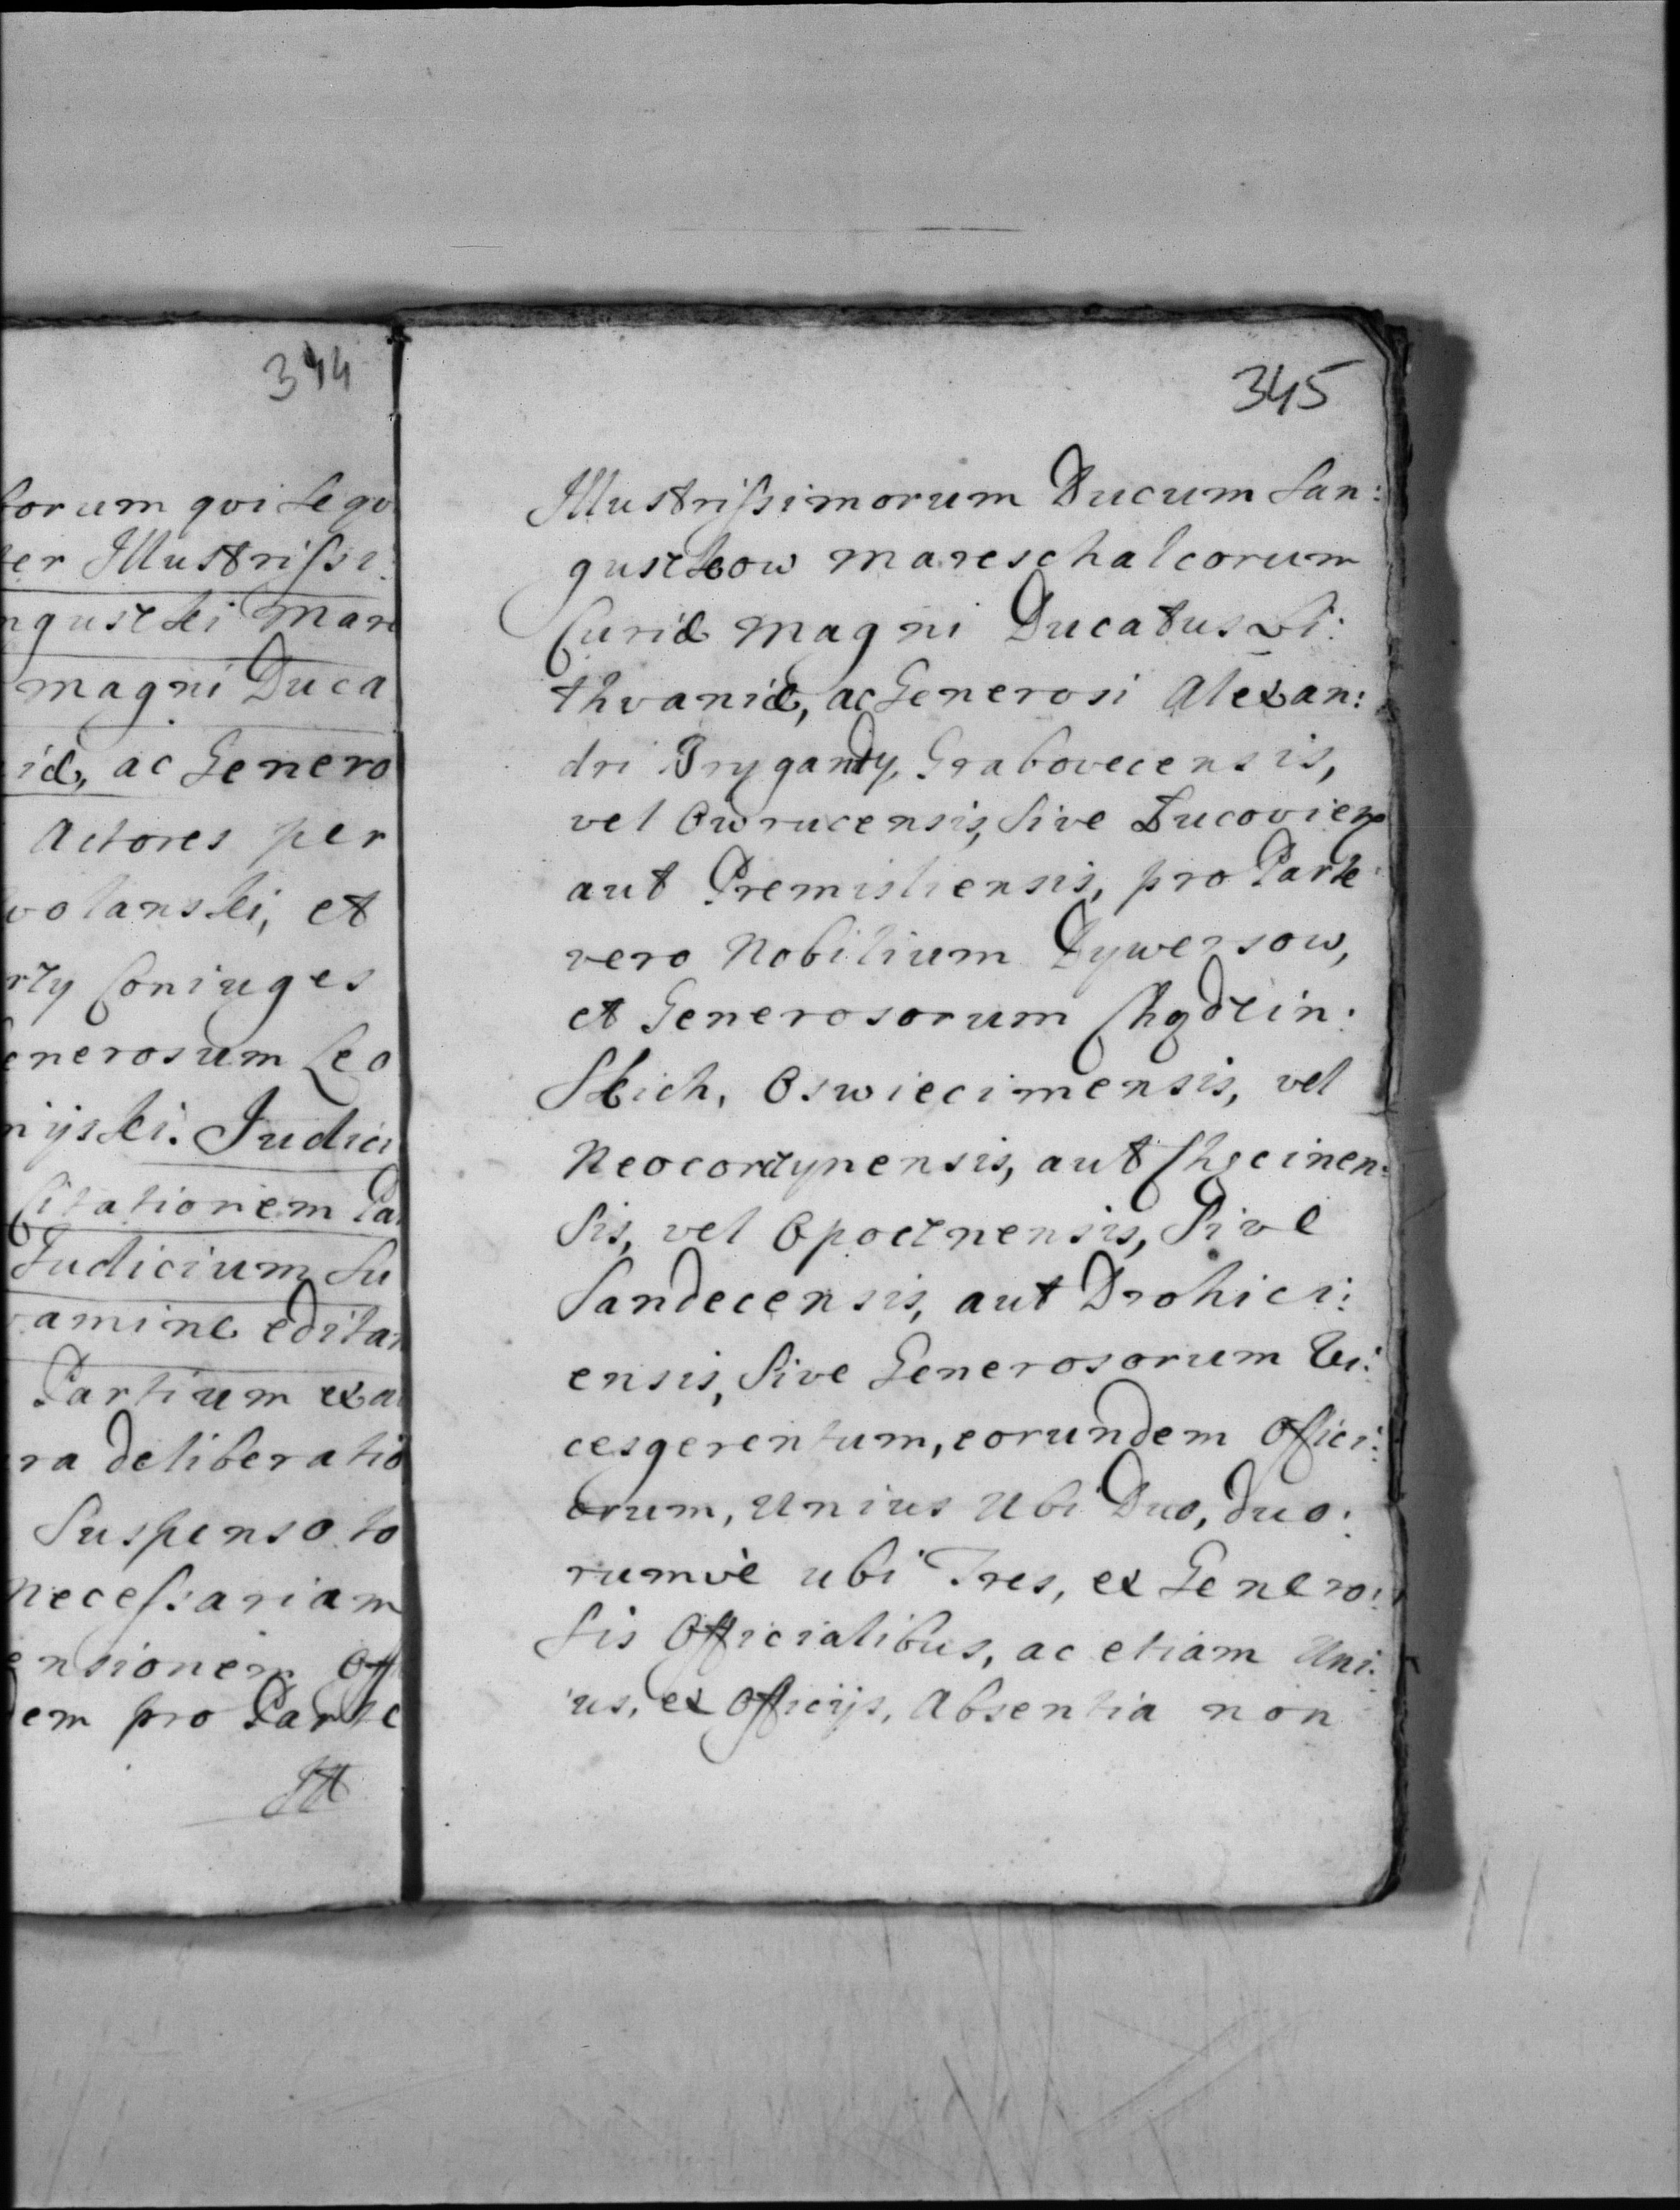 344
torum qui Sequ
ter Illustrissi
nguszki Mare
magni Duca
iæ, ac Genero
Actores per
wolanski, et
rzy Coniuges
enerosum Leo
nijski. Judici
Citationem Pa
Judicium Su
amine edita
Partium exa
ra deliberatio
Suspenso to
necessariam
ensionem Off
dem pro Parte
Ill
345
Illustrissimorum Ducum San:
guszkow mareschalcorum
Curiæ magni Ducatus Li:
thvaniæ, ac Generosi Alexan:
dri Brygandy, Grabovecensis,
vel Owrucensis, Sive Lucovien
aut Premisliensis, pro Parte
vero Nobilium Dywersow,
et Generosorum Chądzin:
Skich, Oswiecimensis, vel
Neocorczynensis, aut Chęcinen:
Sis, vel Opocznensis, Sive
Sandecensis, aut Drohici:
ensis, Sive Generosorum Vi:
cesgerentum, eorundem Offici:
orum, Unius Ubi Duo, duo:
rumvè ubi Tres, ex Genero:
Sis Officialibus, ac etiam Uni:
us, ex Officijs, Absentia non